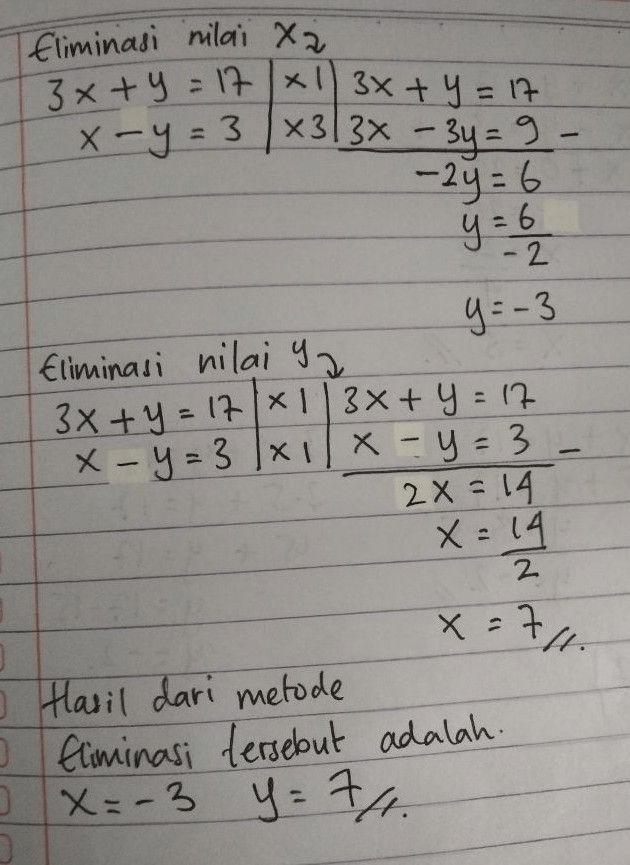 Eliminasi nilai x
3x + y = 17 | x1 | 3x + y = 17
x - y = 3 | x3 | 3x - 3y = 9 -
-2y = 6
y = 6
-2
y = -3
Eliminasi nilai y
3x + y = 17 | x1 | 3x + y = 17
x - y = 3 | x1 | x - y = 3 -
2x = 14
x = 14
2
x = 7 //.
Hasil dari metode
Eliminasi tersebut adalah.
x = -3 y = 7 //.